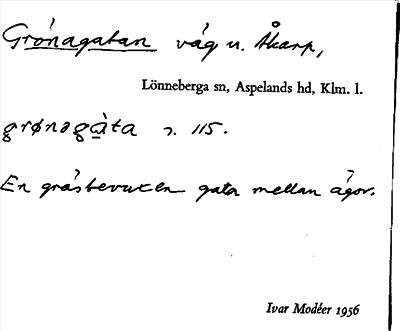 Grönagatan väg u. Åkarp,
Lönneberga sn, Aspelands hd, Klm. l.
grønəgàta 115.
En gräsbevuxen gata mellan ägor.
Ivar Modéer 1956